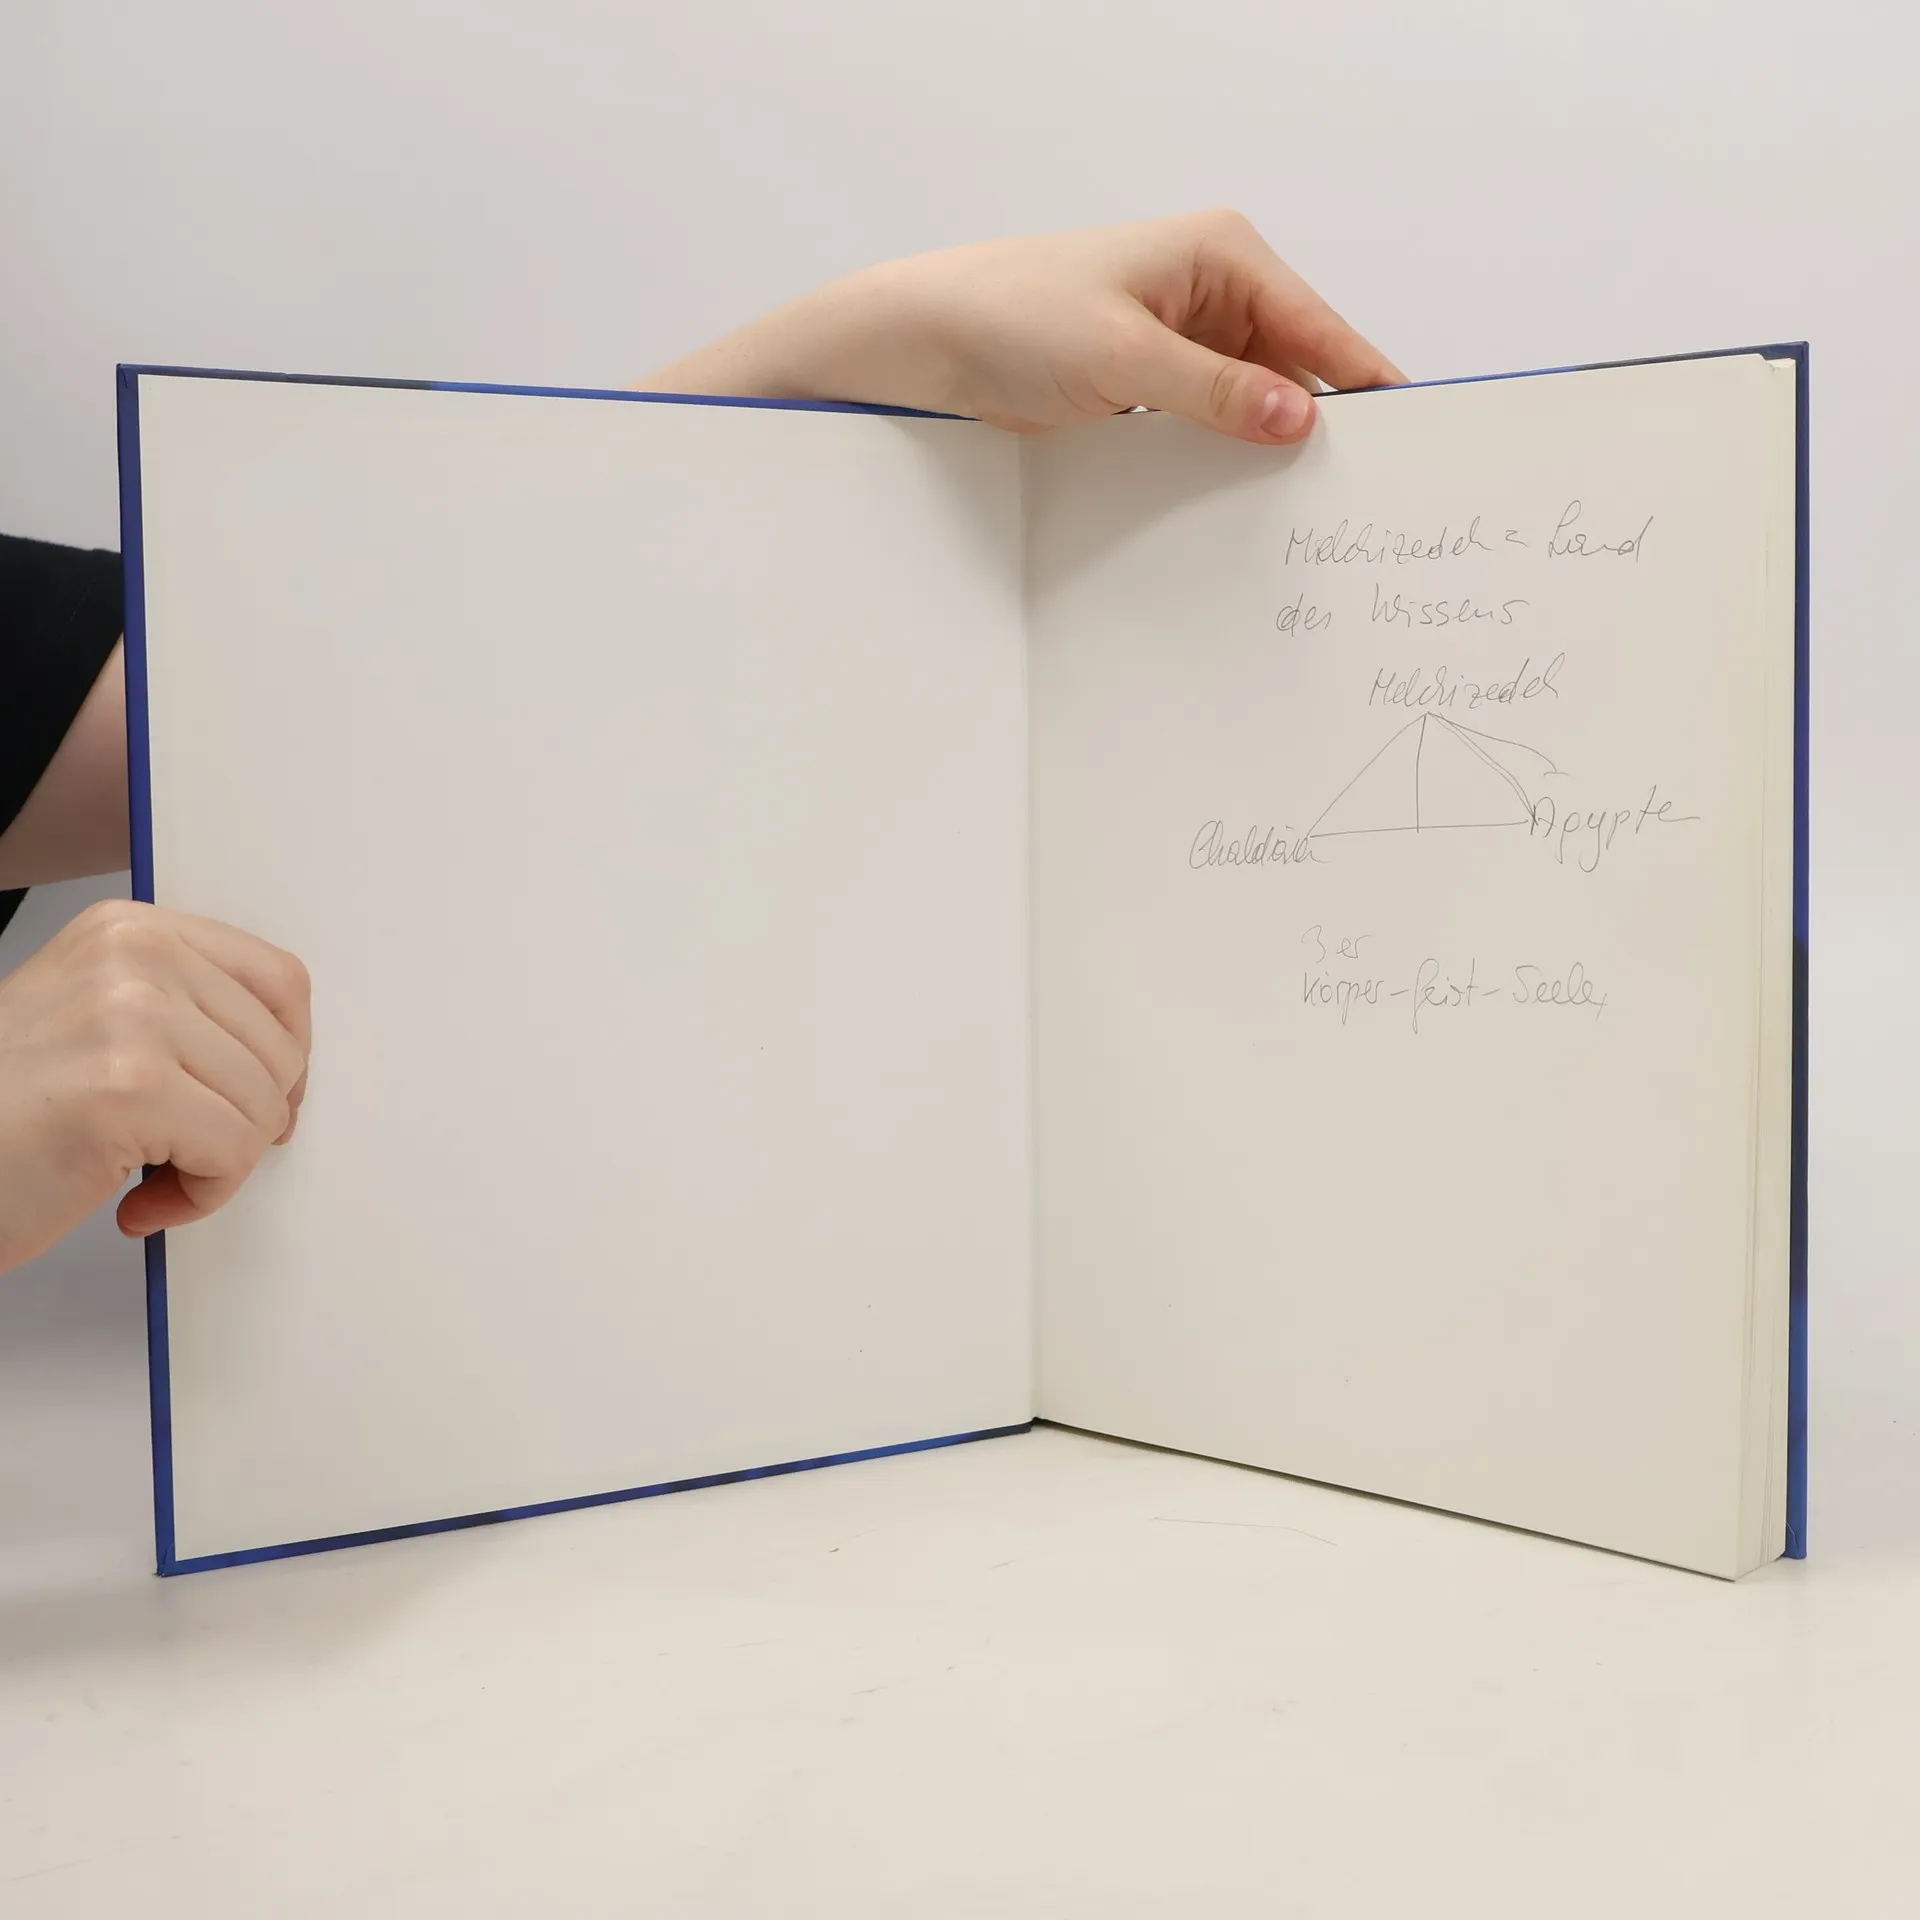 Melchizedek = Land
des Wissens
Melchizedek
Chaldäa
Ägypten
3 er
Körper - Geist - Seele,